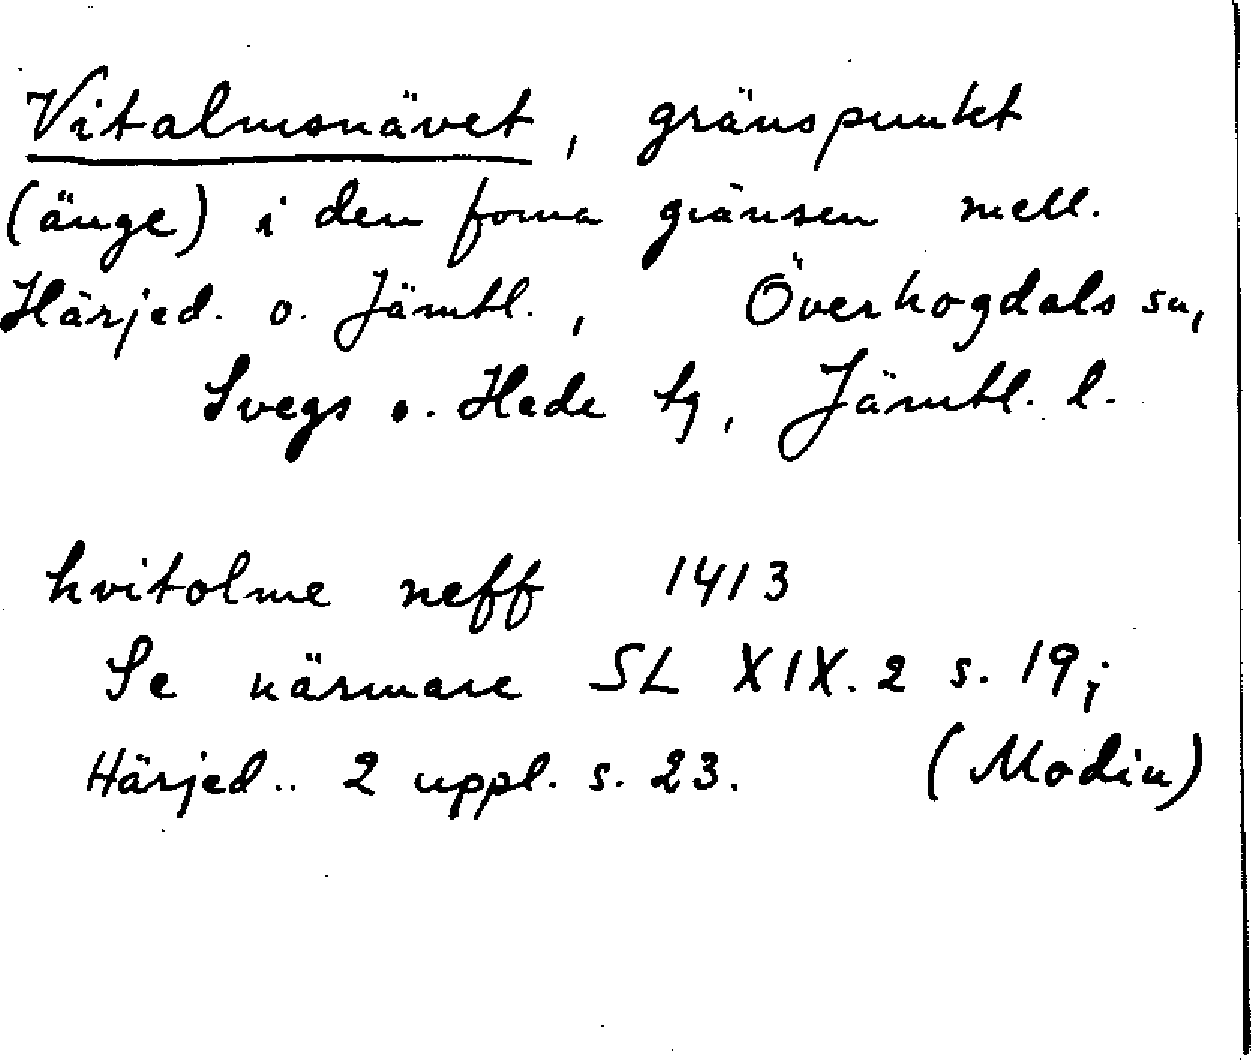 Vitalmsnävet, gränspunkt
(änge) i den forna gränsen mell.
Härjed. o. Jämtl., Överhogdals sn,
Svegs o. Hede tg, Jämtl. l.
hvitolme neff 1413
Se närmare SL XIX.2 s. 19;
Härjed.. 2 uppl. s. 23. (Modin)